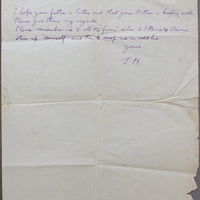 I hope your father is better and that your Mother is keeping well.
Please give them my regards.
Please remember me to all the
and to drop me an address
yours
J M